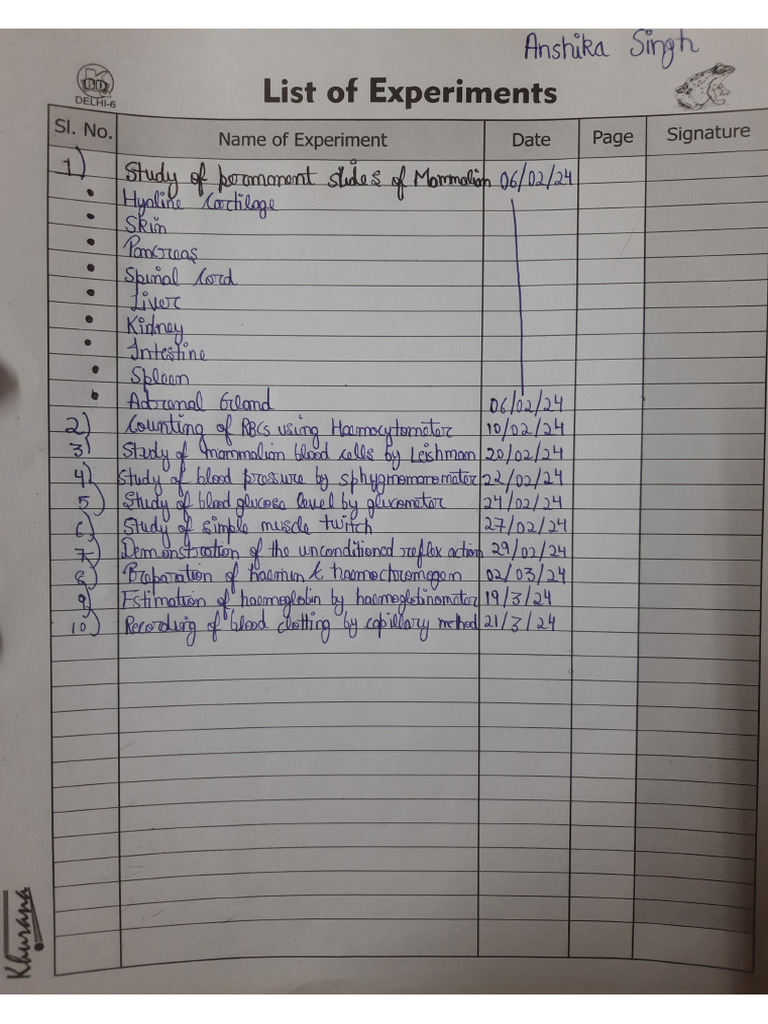 Anshika Singh
KBD
DELHI-6
List of Experiments
Sl. No. Name of Experiment Date Page Signature
1) Study of permanent slides of Mammalian 06/02/24
• Hyaline Cartilage
• Skin
• Pancreas
• Spinal Cord
• Liver
• Kidney
• Intestine
• Spleen
• Adrenal Gland 06/02/24
2) Counting of RBCs using Haemocytometer 10/02/24
3) Study of mammalian blood cells by Leishman 20/02/24
4) Study of blood pressure by sphygmomanometer 22/02/24
5) Study of blood glucose level by glucometer 24/02/24
6) Study of simple muscle twitch 27/02/24
7) Demonstration of the unconditioned reflex action 29/02/24
8) Preparation of haemin & haemochromogen 02/03/24
9) Estimation of haemoglobin by haemoglobinometer 19/3/24
10) Recording of blood clotting by capillary method 21/3/24
Khurana